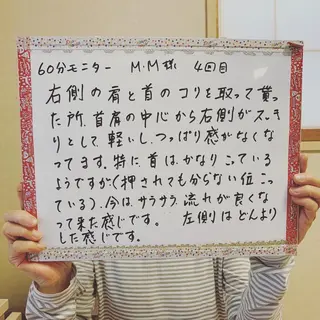 60分モニター M.M様 4回目
右側の肩と首のコリを取って貰っ
た所、首肩の中心から右側がスッキ
リとして、軽いし、つっぱり感がなくな
ってます。特に首は、かなりこっている
ようですが(押されても分らない位こっ
ている)、今は、サラサラ流れが良くな
って来た感じです。 左側はどんより
した感じです。